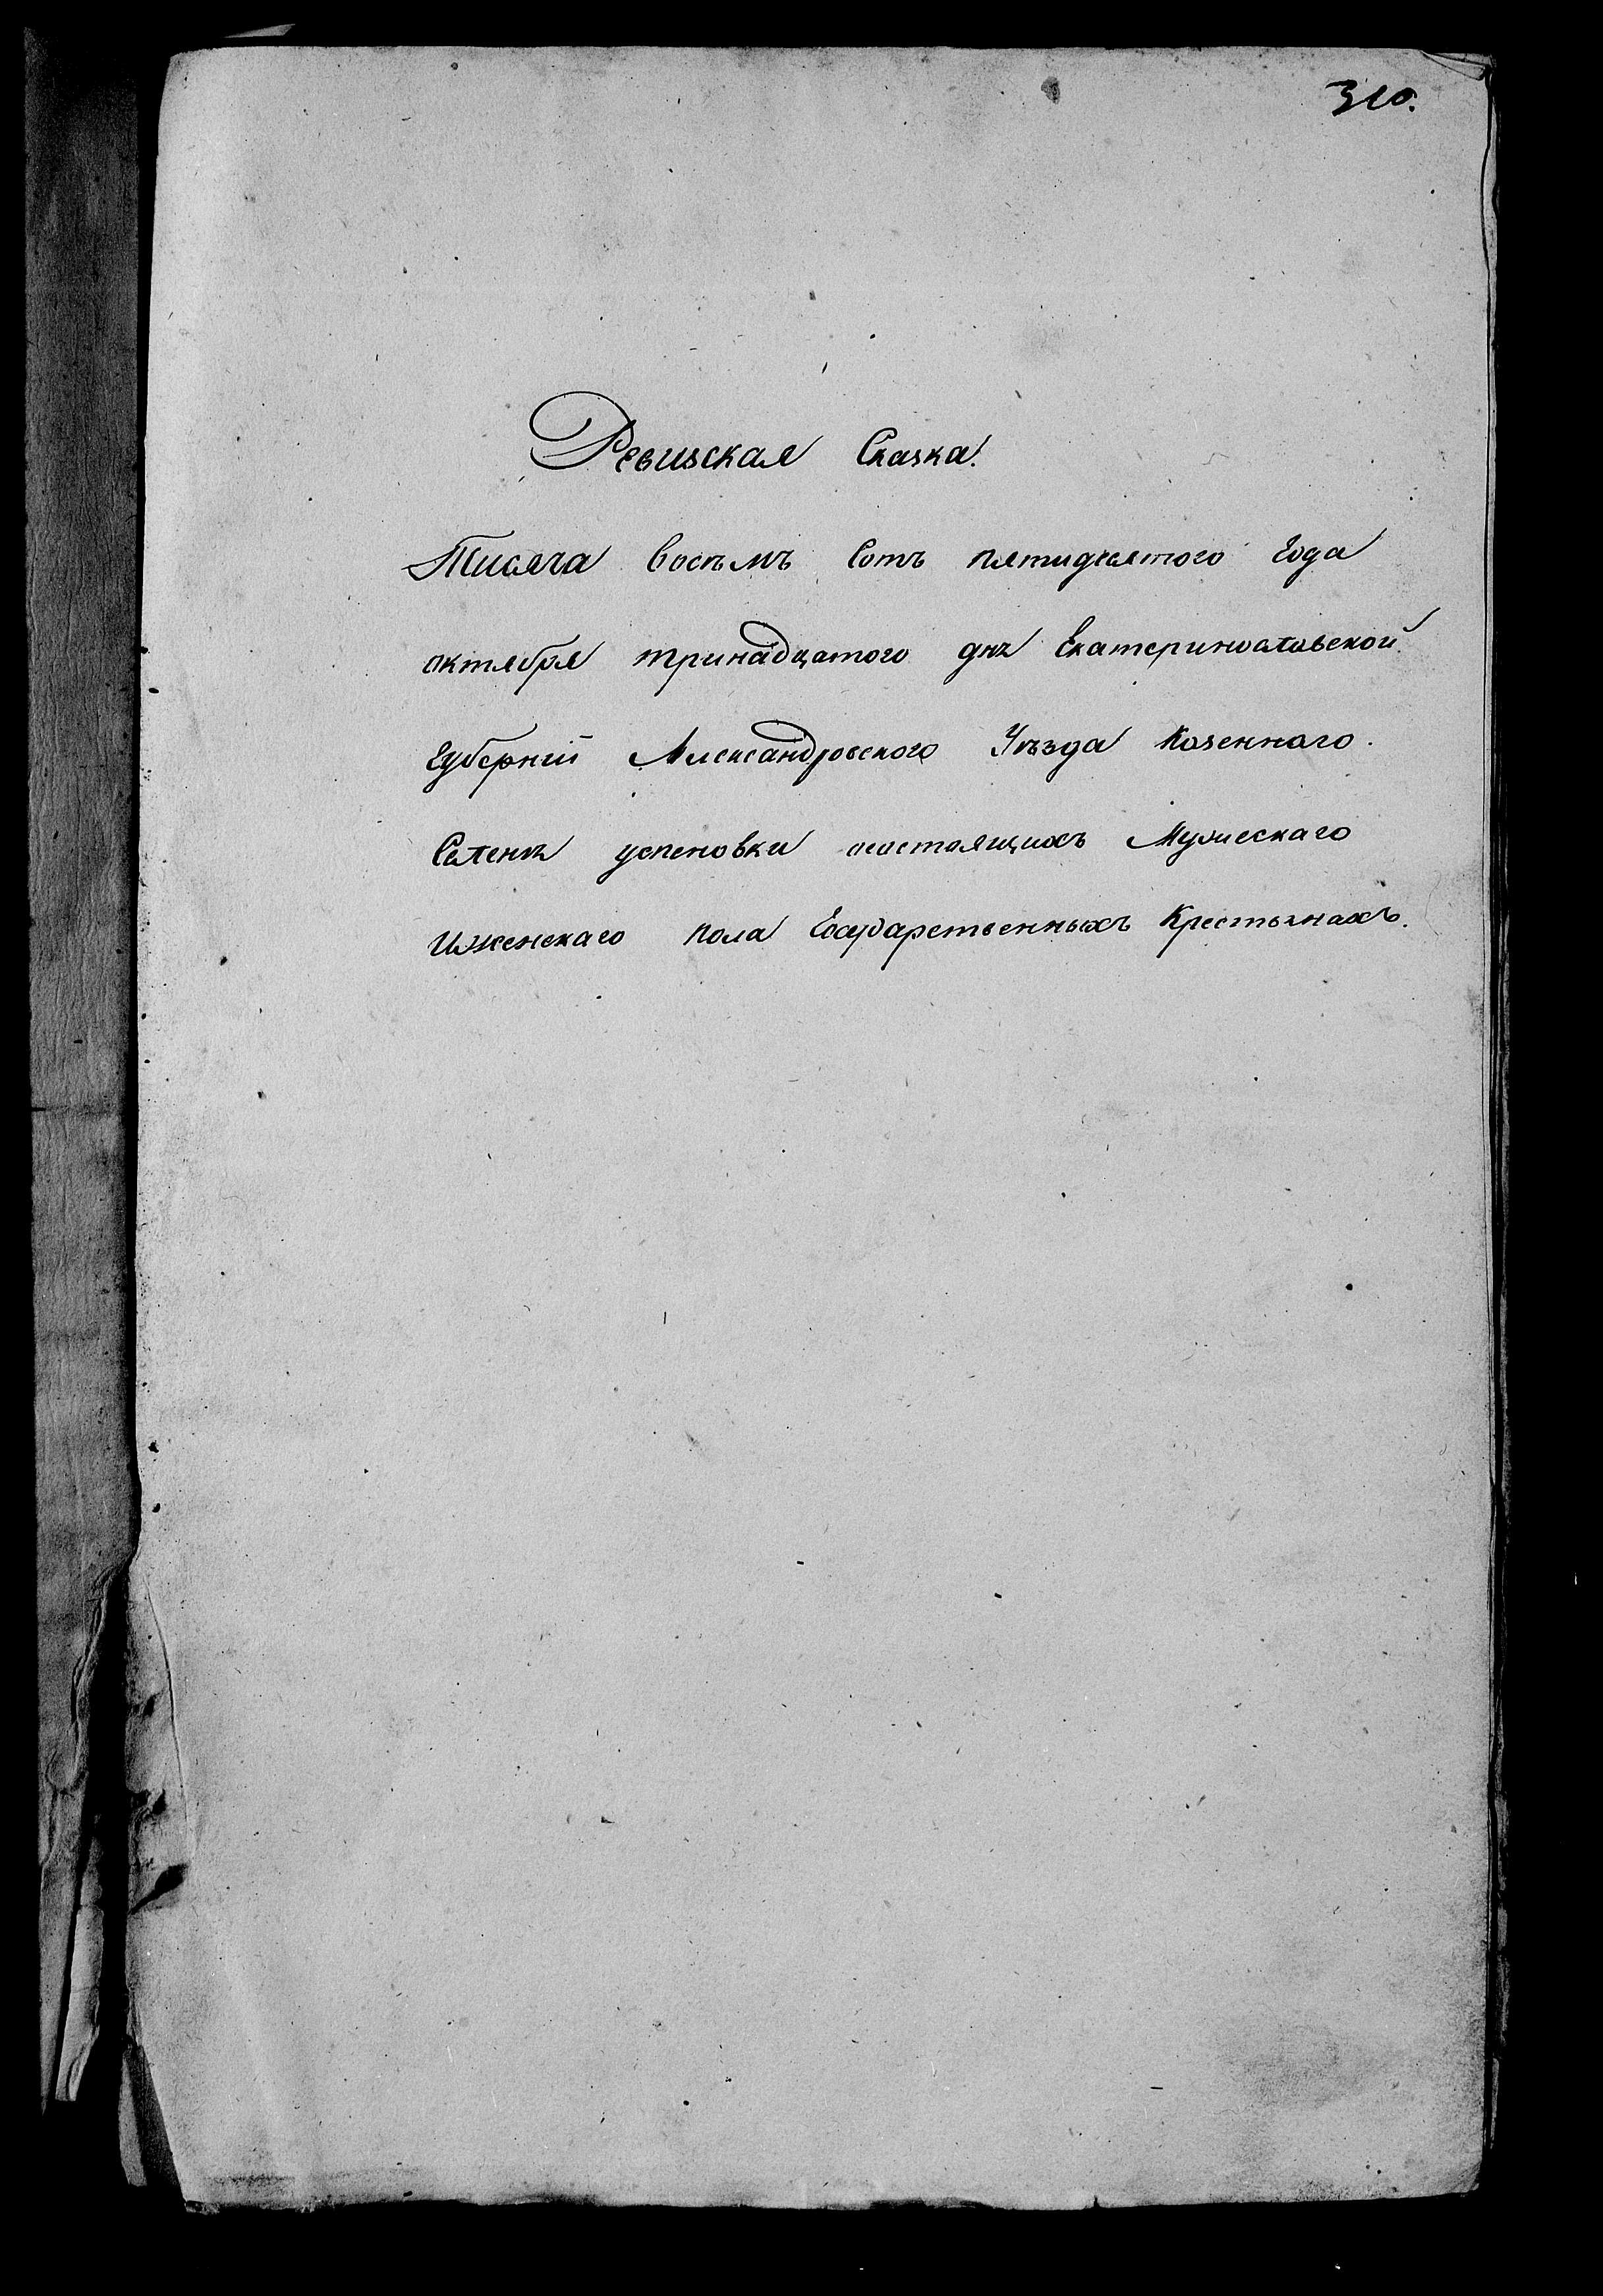 310.
Ревизская Сказка.
Тисяча восѣмъ Сотъ пятидесятого года
октября тринадцатого дня Екатериносλавской
губерніи Александровского Уѣзда Козенного
Селеня успеновки осостоящихъ Мужескаго
Иженскаго пола Государственныхъ Крестьянахъ.